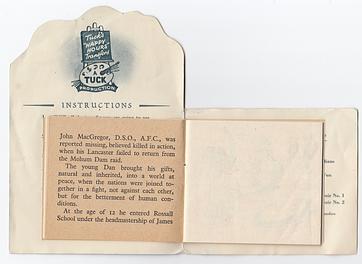 Tuck's
"HAPPY
HOURS"
Transfers
A
TUCK
PRODUCTION
INSTRUCTIONS
John MacGregor, D.S.O., A.F.C., was
reported missing, believed killed in action,
when his Lancaster failed to return from
the Mohum Dam raid.
The young Dan brought his gifts,
natural and inherited, into a world at
peace, when the nations were joined to-
gether in a fight, not against each other,
but for the betterment of human con-
ditions.
At the age of 12 he entered Rossall
School under the headmastership of James
No. 1
No. 2